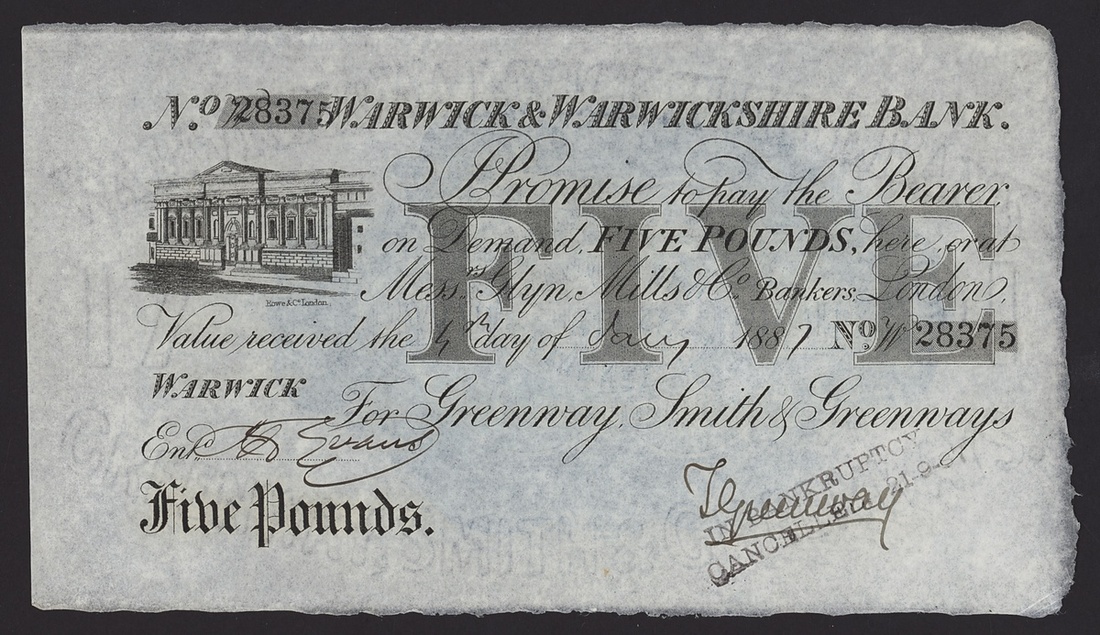 No W 28375 WARWICK & WARWICKSHIRE BANK.
I Promise to pay the Bearer
on Demand, FIVE POUNDS, here, or at
Messrs. Glyn, Mills & Co. Bankers, London,
FIVE
Rowe & Co. London.
Value received the 4th day of Jany 1887 No W 28375
WARWICK
For Greenway, Smith & Greenways
Entd. Evans
Five Pounds.
Greenway
IN BANKRUPTCY
CANCELLED 21-9-